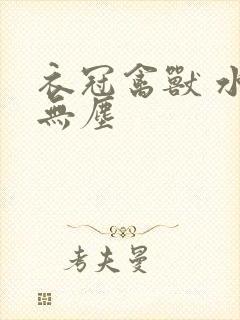 衣冠禽獸 水
無塵
考夫曼